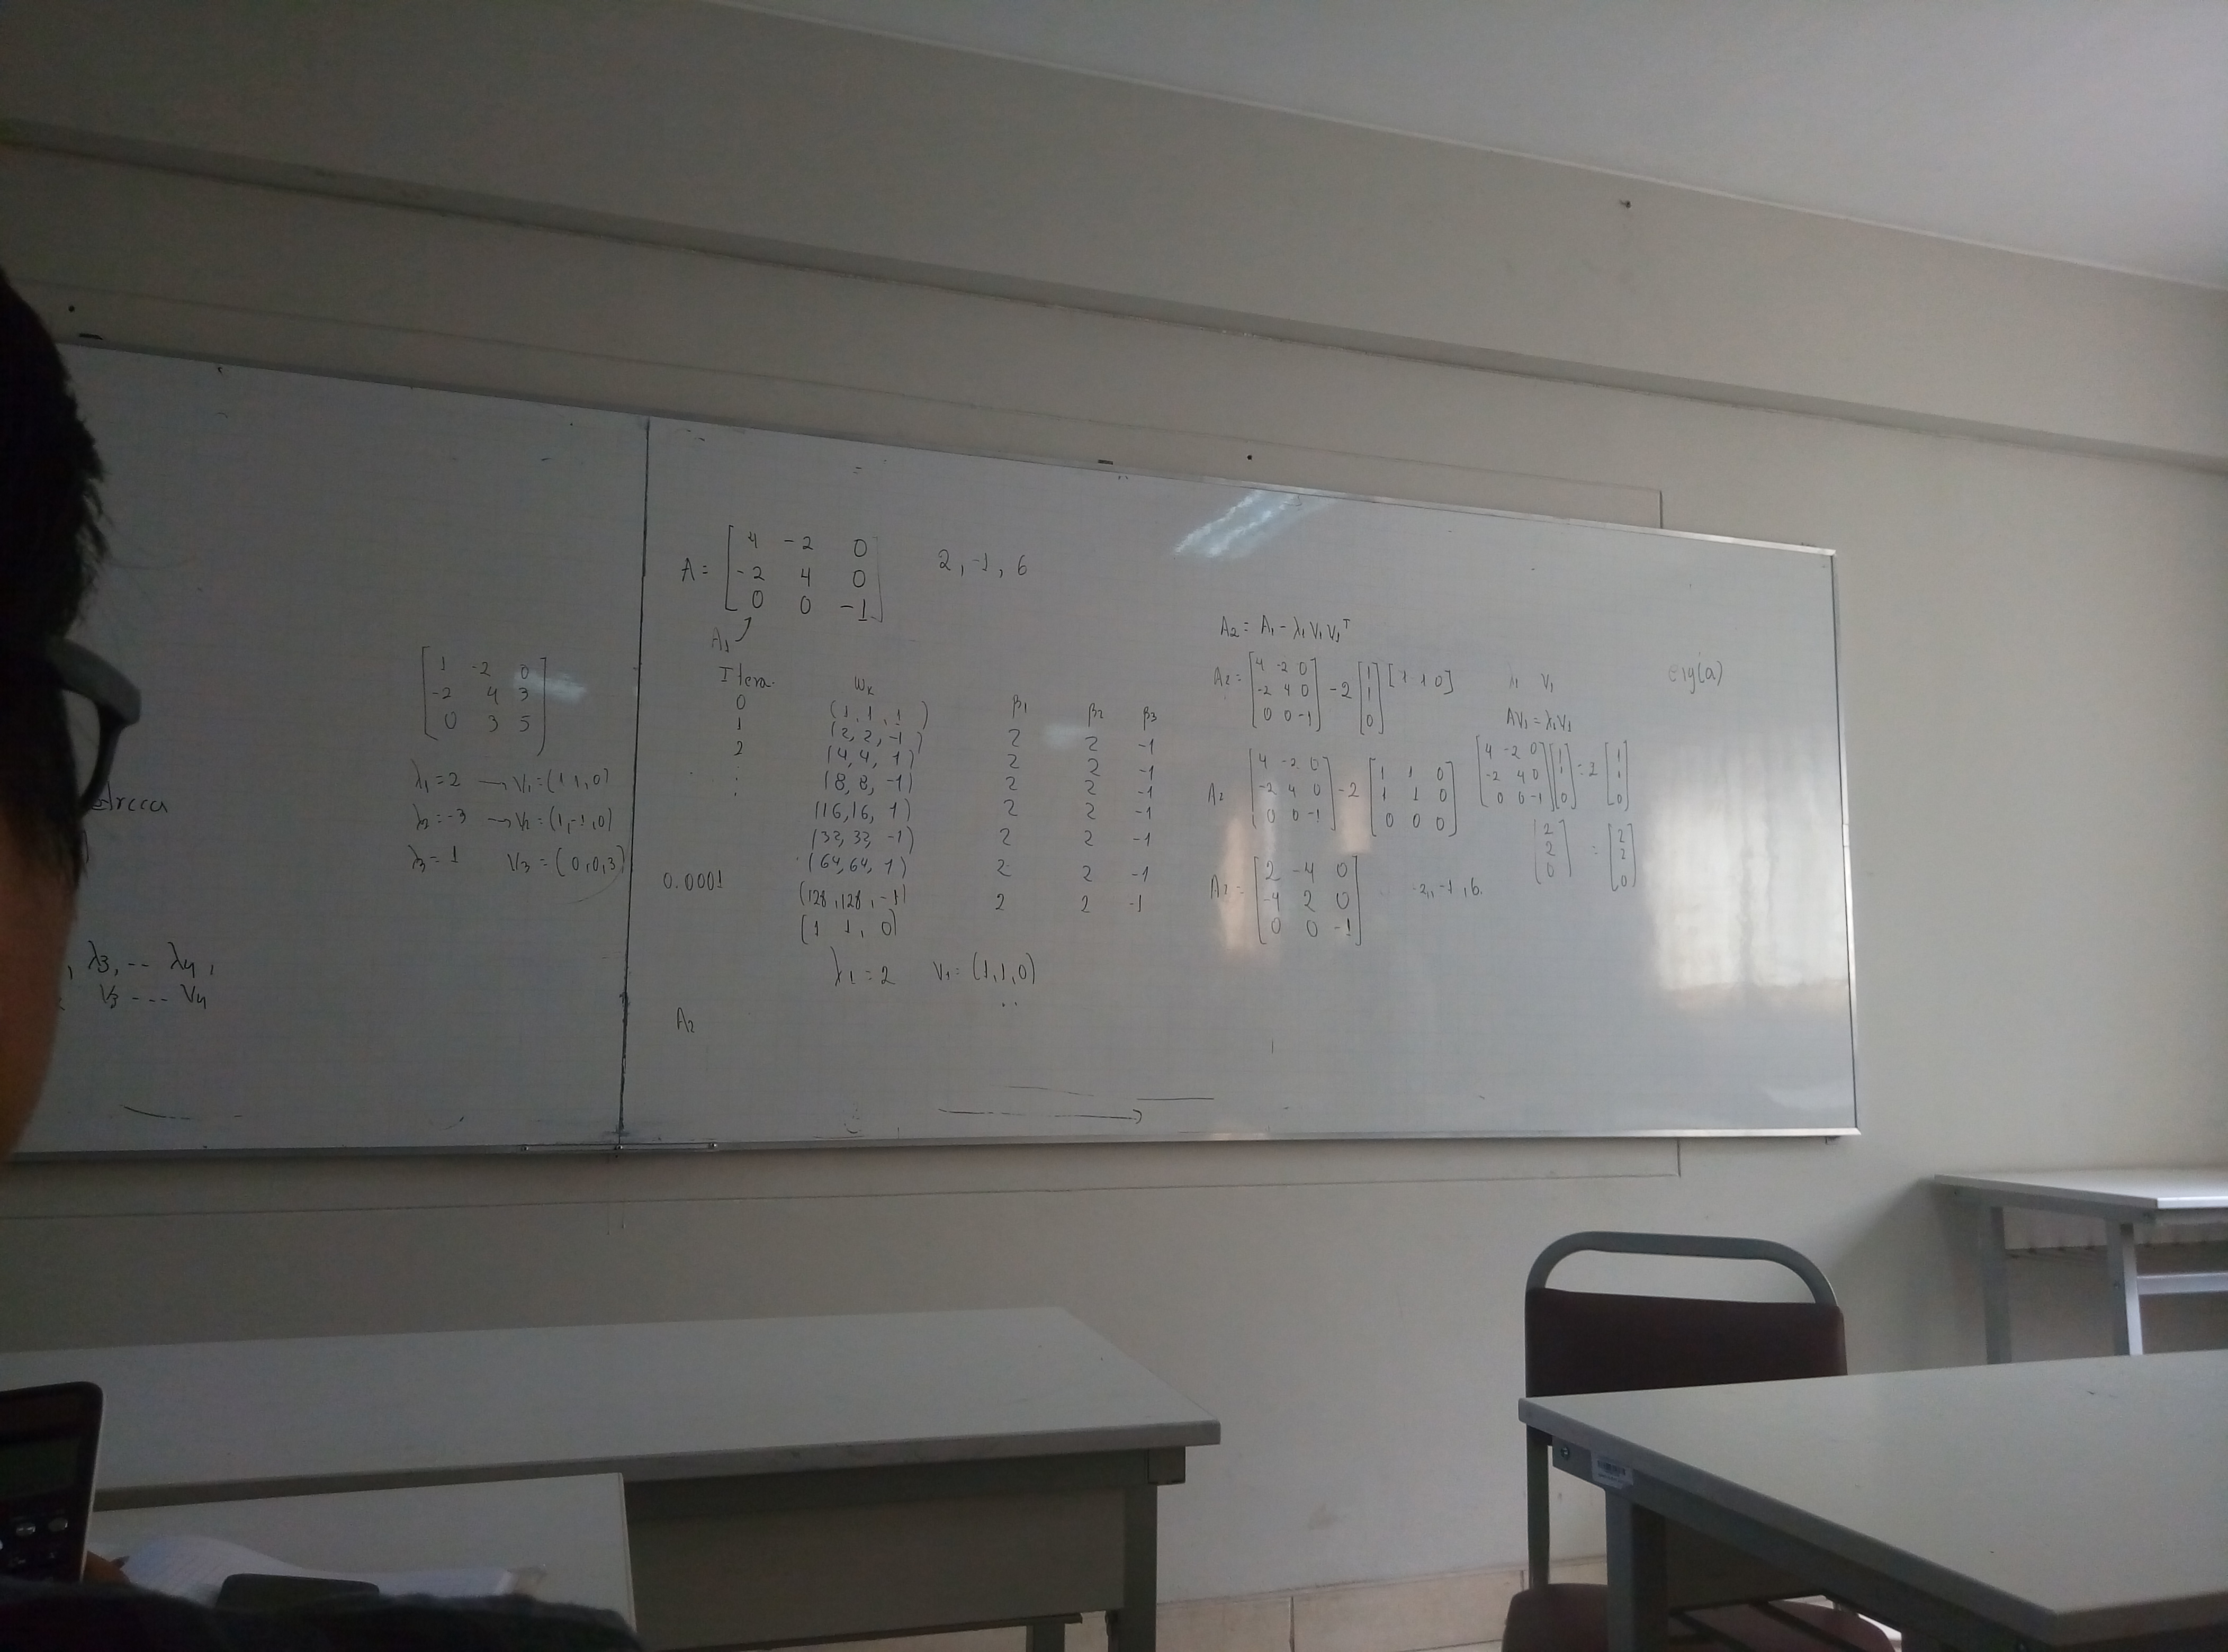 λ3, -- λ4,
V3 --- V4
[1 -2 0
-2 4 3
0 3 5]
λ1 = 2 → V1 = (1 1, 0)
λ2 = -3 → V2 = (1, -1, 0)
λ3 = 1 V3 = (0, 0, 3)
A = [4 -2 0
-2 4 0
0 0 -1]
2, -1, 6
A1
Itera. Wk β1 β2 β3
0 (1, 1, 1)
1 (2, 2, -1) 2 2 -1
2 (4, 4, 1) 2 2 -1
: (8, 8, -1) 2 2 -1
: (16, 16, 1) 2 2 -1
(32, 32, -1) 2 2 -1
(64, 64, 1) 2 2 -1
0.0001 (128, 128, -1) 2 2 -1
(1 1, 0)
λ1 = 2 V1 = (1, 1, 0)
A2
A2 = A1 - λ1 V1 V1ᵀ
A2 = [4 -2 0
-2 4 0
0 0 -1] - 2 [1
1
0] [1 1 0]
A2 [4 -2 0
-2 4 0
0 0 -1] - 2 [1 1 0
1 1 0
0 0 0]
A2 = [2 -4 0
-4 2 0
0 0 -1]
-2, -1, 6.
λ1 V1
AV1 = λ1V1
[4 -2 0
-2 4 0
0 0 -1] [1
1
0] = 2 [1
1
0]
[2
2
0] = [2
2
0]
eig(a)